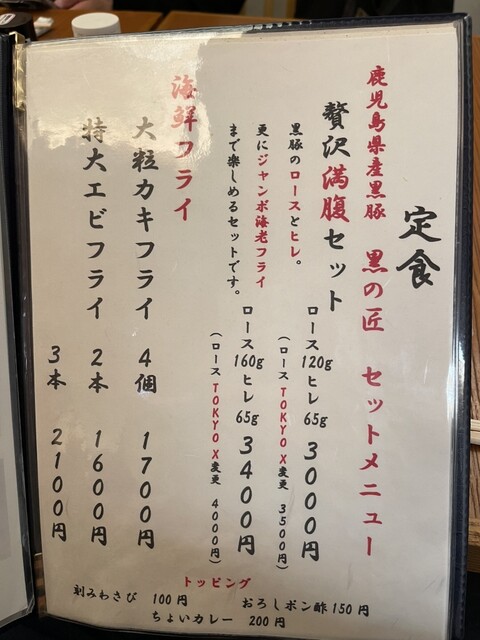 定食
鹿児島県産黒豚 黒の匠 セットメニュー
贅沢満腹セット
黒豚のロースとヒレ。
更にジャンボ海老フライ
まで楽しめるセットです。
ロース120g ヒレ 65g 3000円
(ロース TOKYO X変更 3500円)
ロース160g ヒレ 65g 3400円
(ロース TOKYO X変更 4000円)
海鮮フライ
大粒カキフライ 4個 1700円
特大エビフライ 2本 1600円
3本 2100円
トッピング
刻みわさび 100円 おろしポン酢150円
ちょいカレー 200円